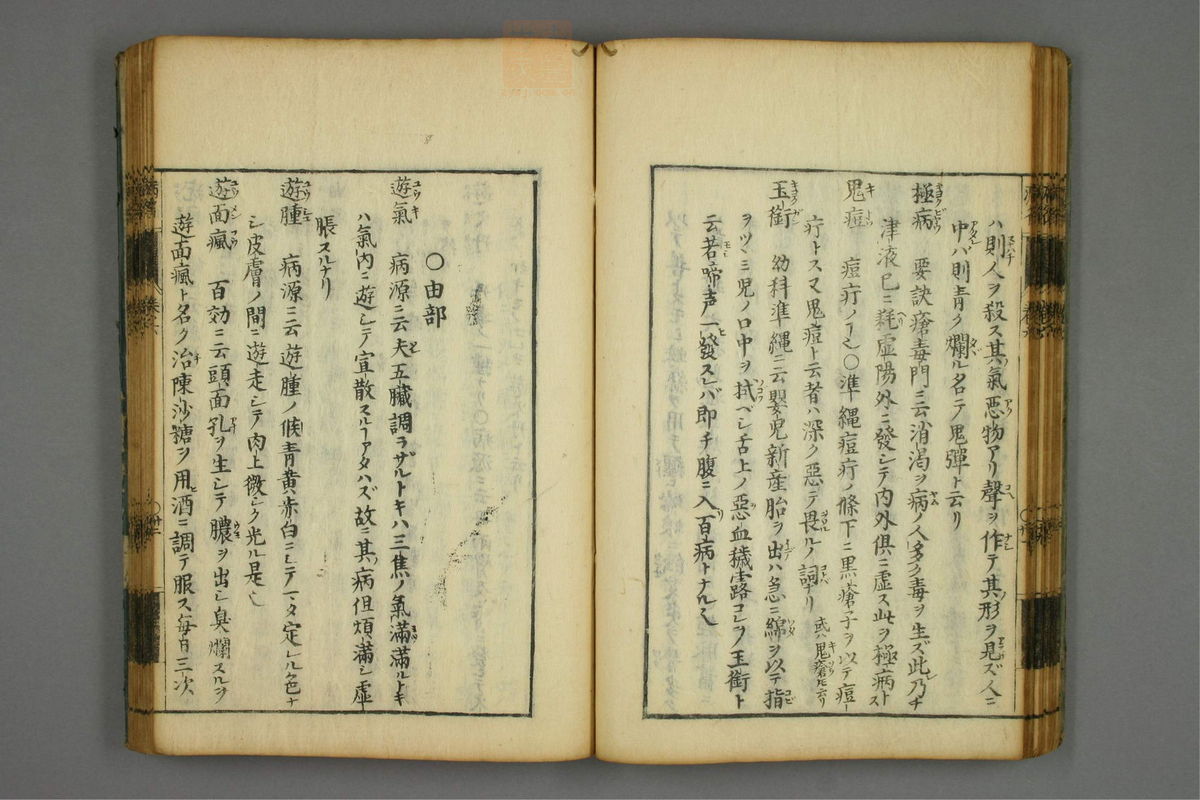 ハ則人ヲ殺ス其氣惡物アリ聲ヲ作テ其形ヲ見ズ人ニ
中バ則青ク爛ル名テ鬼彈ト云リ
極病 要訣瘡毒門ニ云消渇ヲ病ノ人多ク毒ヲ生ズ此乃チ
津液已ニ耗虚陽外ニ發シテ内外倶ニ虚ス此ヲ極病ト
鬼痘 痘疔ノヿ也○準縄痘疔ノ條下ニ黒瘡子ヲ以テ痘
疔トス又鬼痘ト云者ハ深ク惡テ畏ルノ詞ナリ 或ハ鬼瘡トモ云リ
玉銜 幼科準縄ニ云嬰児新産胎ヲ出ハ急ニ綿ヲ以テ指
ヲツヽミ児ノ口中ヲ拭ベシ舌上ノ惡血穢露コレヲ玉銜ト
云若啼声一發スレバ即チ腹ニ入百病トナル也
○由部
遊氣 病源ニ云夫五臓調ラザルトキハ三焦ノ氣滿滿ルトキ
ハ氣内ニ遊シテ宣散スルヿアタハズ故ニ其病但煩滿シ虚
脹スルナリ
遊腫 病源ニ云遊腫ノ候青黄赤白ニシテマタ定レル色ナ
シ皮膚ノ間ニ遊走シテ肉上微シク光ル是也
遊面瘋 百効ニ云頭面孔ヲ生シテ膿ヲ出シ臭爛スルヲ
遊面瘋ト名ク治陳沙糖ヲ用酒ニ調テ服ス毎日三次